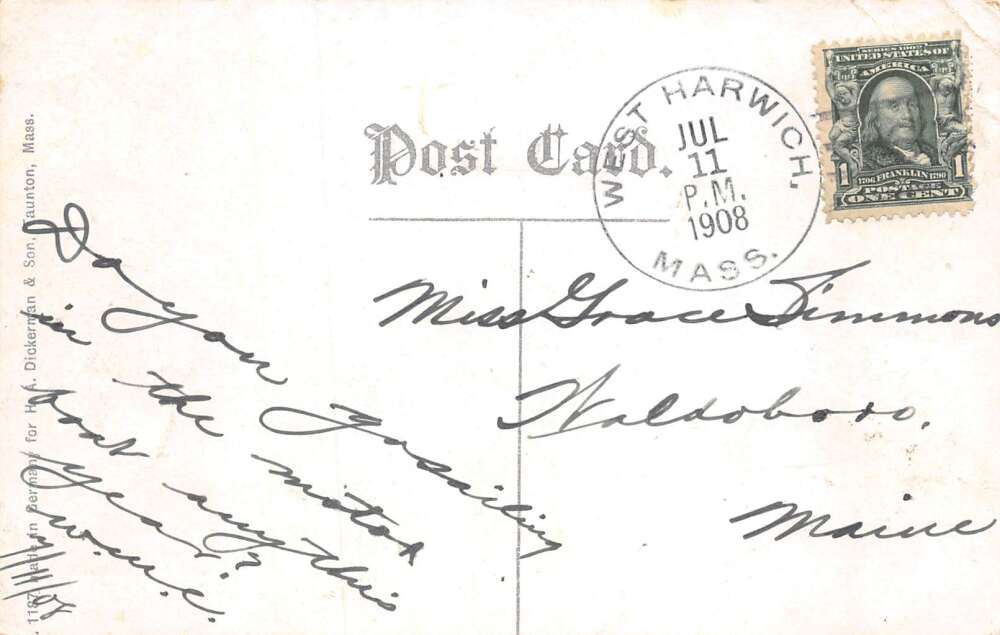 Post Card.
WEST HARWICH,
JUL
11
P.M.
1908
MASS.
SERIES 1902
UNITED STATES OF
AMERICA
1 1706 FRANKLIN 1790 1
POSTAGE
ONE CENT
Miss Grace Simmons
Waldoboro,
Maine
Do you go sailing
in the motor
boat any this
year?
W.M.C.
7/11/08
1187. Made in Germany for H. A. Dickerman & Son, Taunton, Mass.